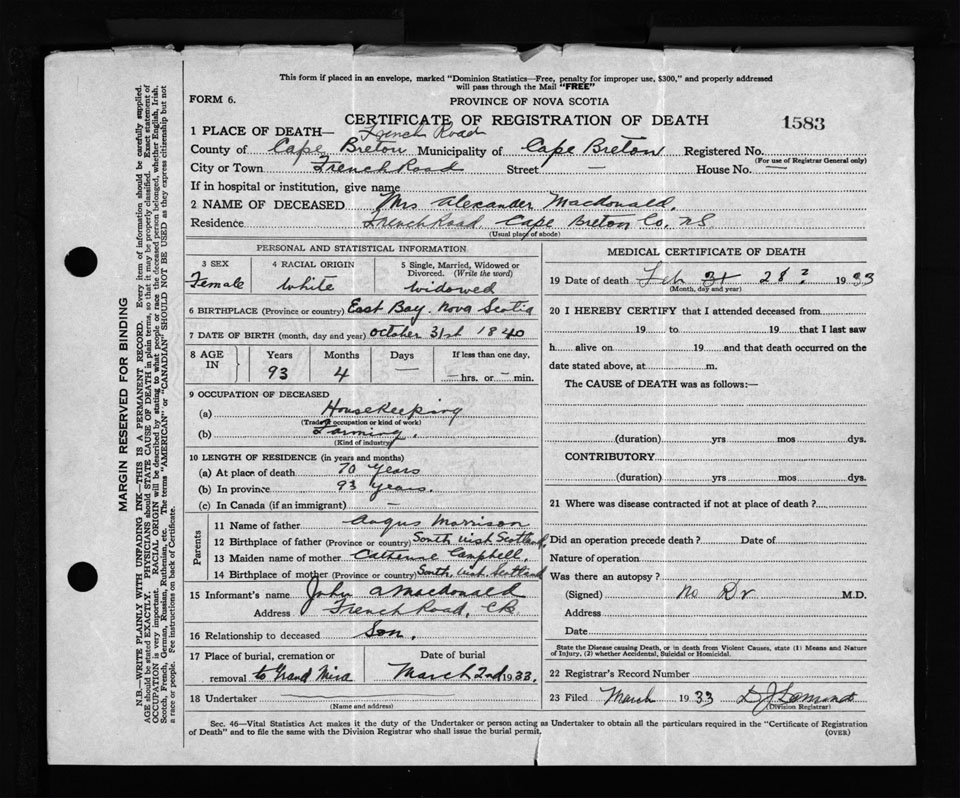 This form if placed in an envelope, marked "Dominion Statistics—Free, penalty for improper use, $300," and properly addressed
will pass through the Mail "FREE"
FORM 6.
PROVINCE OF NOVA SCOTIA
CERTIFICATE OF REGISTRATION OF DEATH
1583
1 PLACE OF DEATH— French Road
County of Cape Breton Municipality of Cape Breton Registered No.
(For use of Registrar General only)
City or Town French Road Street — House No. —
If in hospital or institution, give name
2 NAME OF DECEASED Mrs Alexander Macdonald.
Residence French Road. Cape Breton Co. N.S.
(Usual place of abode)
PERSONAL AND STATISTICAL INFORMATION
3 SEX 4 RACIAL ORIGIN 5 Single, Married, Widowed or
Divorced. (Write the word)
Female White Widowed
6 BIRTHPLACE (Province or country) East Bay. Nova Scotia
7 DATE OF BIRTH (month, day and year) October 31st 1840
8 AGE IN Years Months Days If less than one day,
93 4 — — hrs. or — min.
9 OCCUPATION OF DECEASED
(a) Housekeeping
(Trade or occupation or kind of work)
(b) Farming.
(Kind of industry)
10 LENGTH OF RESIDENCE (in years and months)
(a) At place of death 70 years
(b) In province 93 years.
(c) In Canada (if an immigrant) —
Parents
11 Name of father Angus Morrison
12 Birthplace of father (Province or country) South Uist Scotland.
13 Maiden name of mother Catherine Campbell.
14 Birthplace of mother (Province or country) South Uist. Scotland
15 Informant's name John A Macdonald
Address French Road, C.B.
16 Relationship to deceased Son.
17 Place of burial, cremation or Date of burial
removal to Grand Mira March 2nd 1933.
18 Undertaker
(Name and address)
MEDICAL CERTIFICATE OF DEATH
19 Date of death Feb 28? 1933
(Month, day and year)
20 I HEREBY CERTIFY that I attended deceased from
19 to 19 that I last saw
h alive on 19 and that death occurred on the
date stated above, at m.
The CAUSE of DEATH was as follows:—
(duration) yrs mos dys.
CONTRIBUTORY
(duration) yrs mos dys.
21 Where was disease contracted if not at place of death?
Did an operation precede death? Date of
Nature of operation
Was there an autopsy?
(Signed) No Dr M.D.
Address
Date
State the Disease causing Death, or in death from Violent Causes, state (1) Means and Nature
of Injury, (2) whether Accidental, Suicidal or Homicidal.
22 Registrar's Record Number
23 Filed March 1933 D J
(Division Registrar)
Sec. 46—Vital Statistics Act makes it the duty of the Undertaker or person acting as Undertaker to obtain all the particulars required in the "Certificate of Registration
of Death" and to file the same with the Division Registrar who shall issue the burial permit.
(OVER)
MARGIN RESERVED FOR BINDING
N.B.—WRITE PLAINLY WITH UNFADING INK—THIS IS A PERMANENT RECORD. Every item of information should be carefully supplied.
AGE should be stated EXACTLY. PHYSICIANS should STATE CAUSE OF DEATH in plain terms, so that it may be properly classified. Exact statement of
OCCUPATION is very important. RACIAL ORIGIN will be described by stating to what people or race the deceased person belonged, whether English, Irish,
Scotch, French, German, Russian, Ruthenian, etc. The terms "AMERICAN" or "CANADIAN" SHOULD NOT BE USED as they express citizenship but not
a race or people. Fee instructions on back of Certificate.